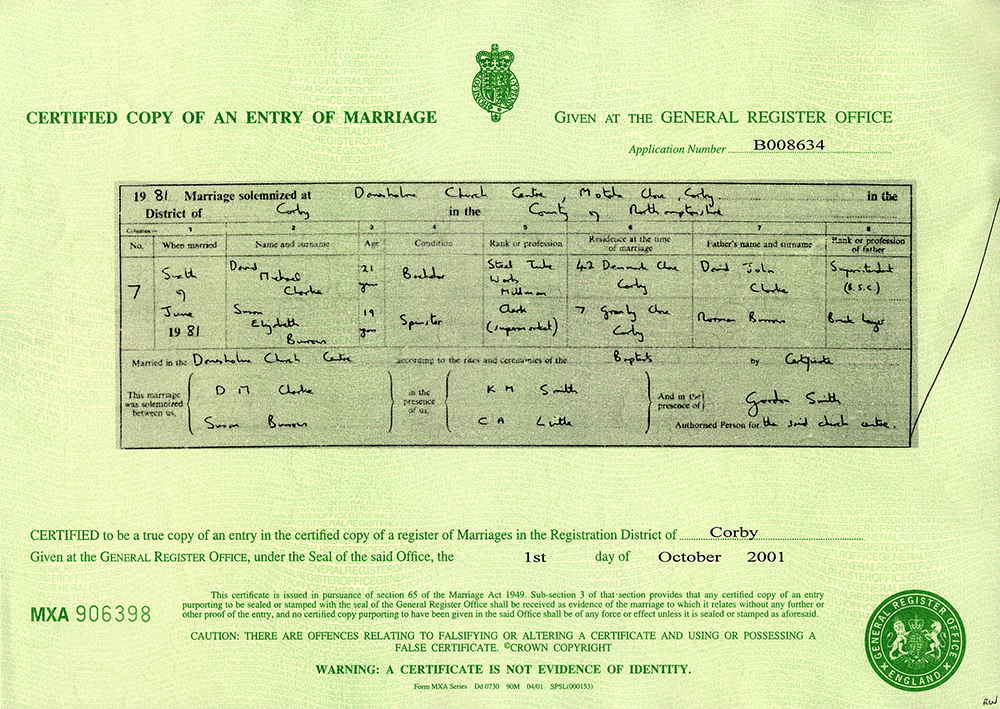 CERTIFIED COPY OF AN ENTRY OF MARRIAGE
GIVEN AT THE GENERAL REGISTER OFFICE
Application Number B008634
1981 Marriage solemnized at Danesholme Church Centre, Motala Close, Corby in the
District of Corby in the County of Northamptonshire
Columns :– 1 2 3 4 5 6 7 8
No. When married Name and surname Age Condition Rank or profession Residence at the time of marriage Father's name and surname Rank or profession of father
7 Sixth of June 1981
David Michael Clarke 21 years Bachelor Steel Tube Works Millman 42 Denmark Close Corby David John Clarke Superintendent (B.S.C.)
Susan Elizabeth Burrows 19 years Spinster Clerk (supermarket) 7 Close Corby Norman Burrows Brick layer
Married in the Danesholme Church Centre according to the rites and ceremonies of the Baptists by Certificate
This marriage was solemnized between us,
D M Clarke
Susan Burrows
in the presence of us,
K M Smith
C A Little
And in the presence of
Gordon Smith
Authorised Person for the said church centre.
CERTIFIED to be a true copy of an entry in the certified copy of a register of Marriages in the Registration District of Corby
Given at the GENERAL REGISTER OFFICE, under the Seal of the said Office, the 1st day of October 2001
MXA 906398
This certificate is issued in pursuance of section 65 of the Marriage Act 1949. Sub-section 3 of that section provides that any certified copy of an entry
purporting to be sealed or stamped with the seal of the General Register Office shall be received as evidence of the marriage to which it relates without any further or
other proof of the entry, and no certified copy purporting to have been given in the said Office shall be of any force or effect unless it is sealed or stamped as aforesaid.
CAUTION: THERE ARE OFFENCES RELATING TO FALSIFYING OR ALTERING A CERTIFICATE AND USING OR POSSESSING A
FALSE CERTIFICATE. ©CROWN COPYRIGHT
WARNING: A CERTIFICATE IS NOT EVIDENCE OF IDENTITY.
Form MXA Series Dd 0730 90M 04/01 SPSL(000153)
GENERAL REGISTER OFFICE
ENGLAND
RW